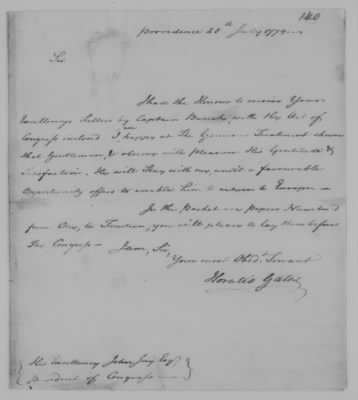 140
Providence 28th July 1779.
Sir
I had the Honour to receive Your
Excellency's Letters by Captain with the Act of
Congress inclosed. I am happy at The Generous Treatment shewn
that Gentleman, & observe with Pleasure His Gratitude &
Satisfaction. He will Stay with me, until a favourable
Opportunity offers to enable him to return to Europe —
In the Packet are Papers Numbered
from One, to Fourteen, you will please to lay them before
The Congress — I am, Sir,
Your most Obedt. Servant
Horatio Gates
His Excellency John Jay Esqr.
President of Congress —